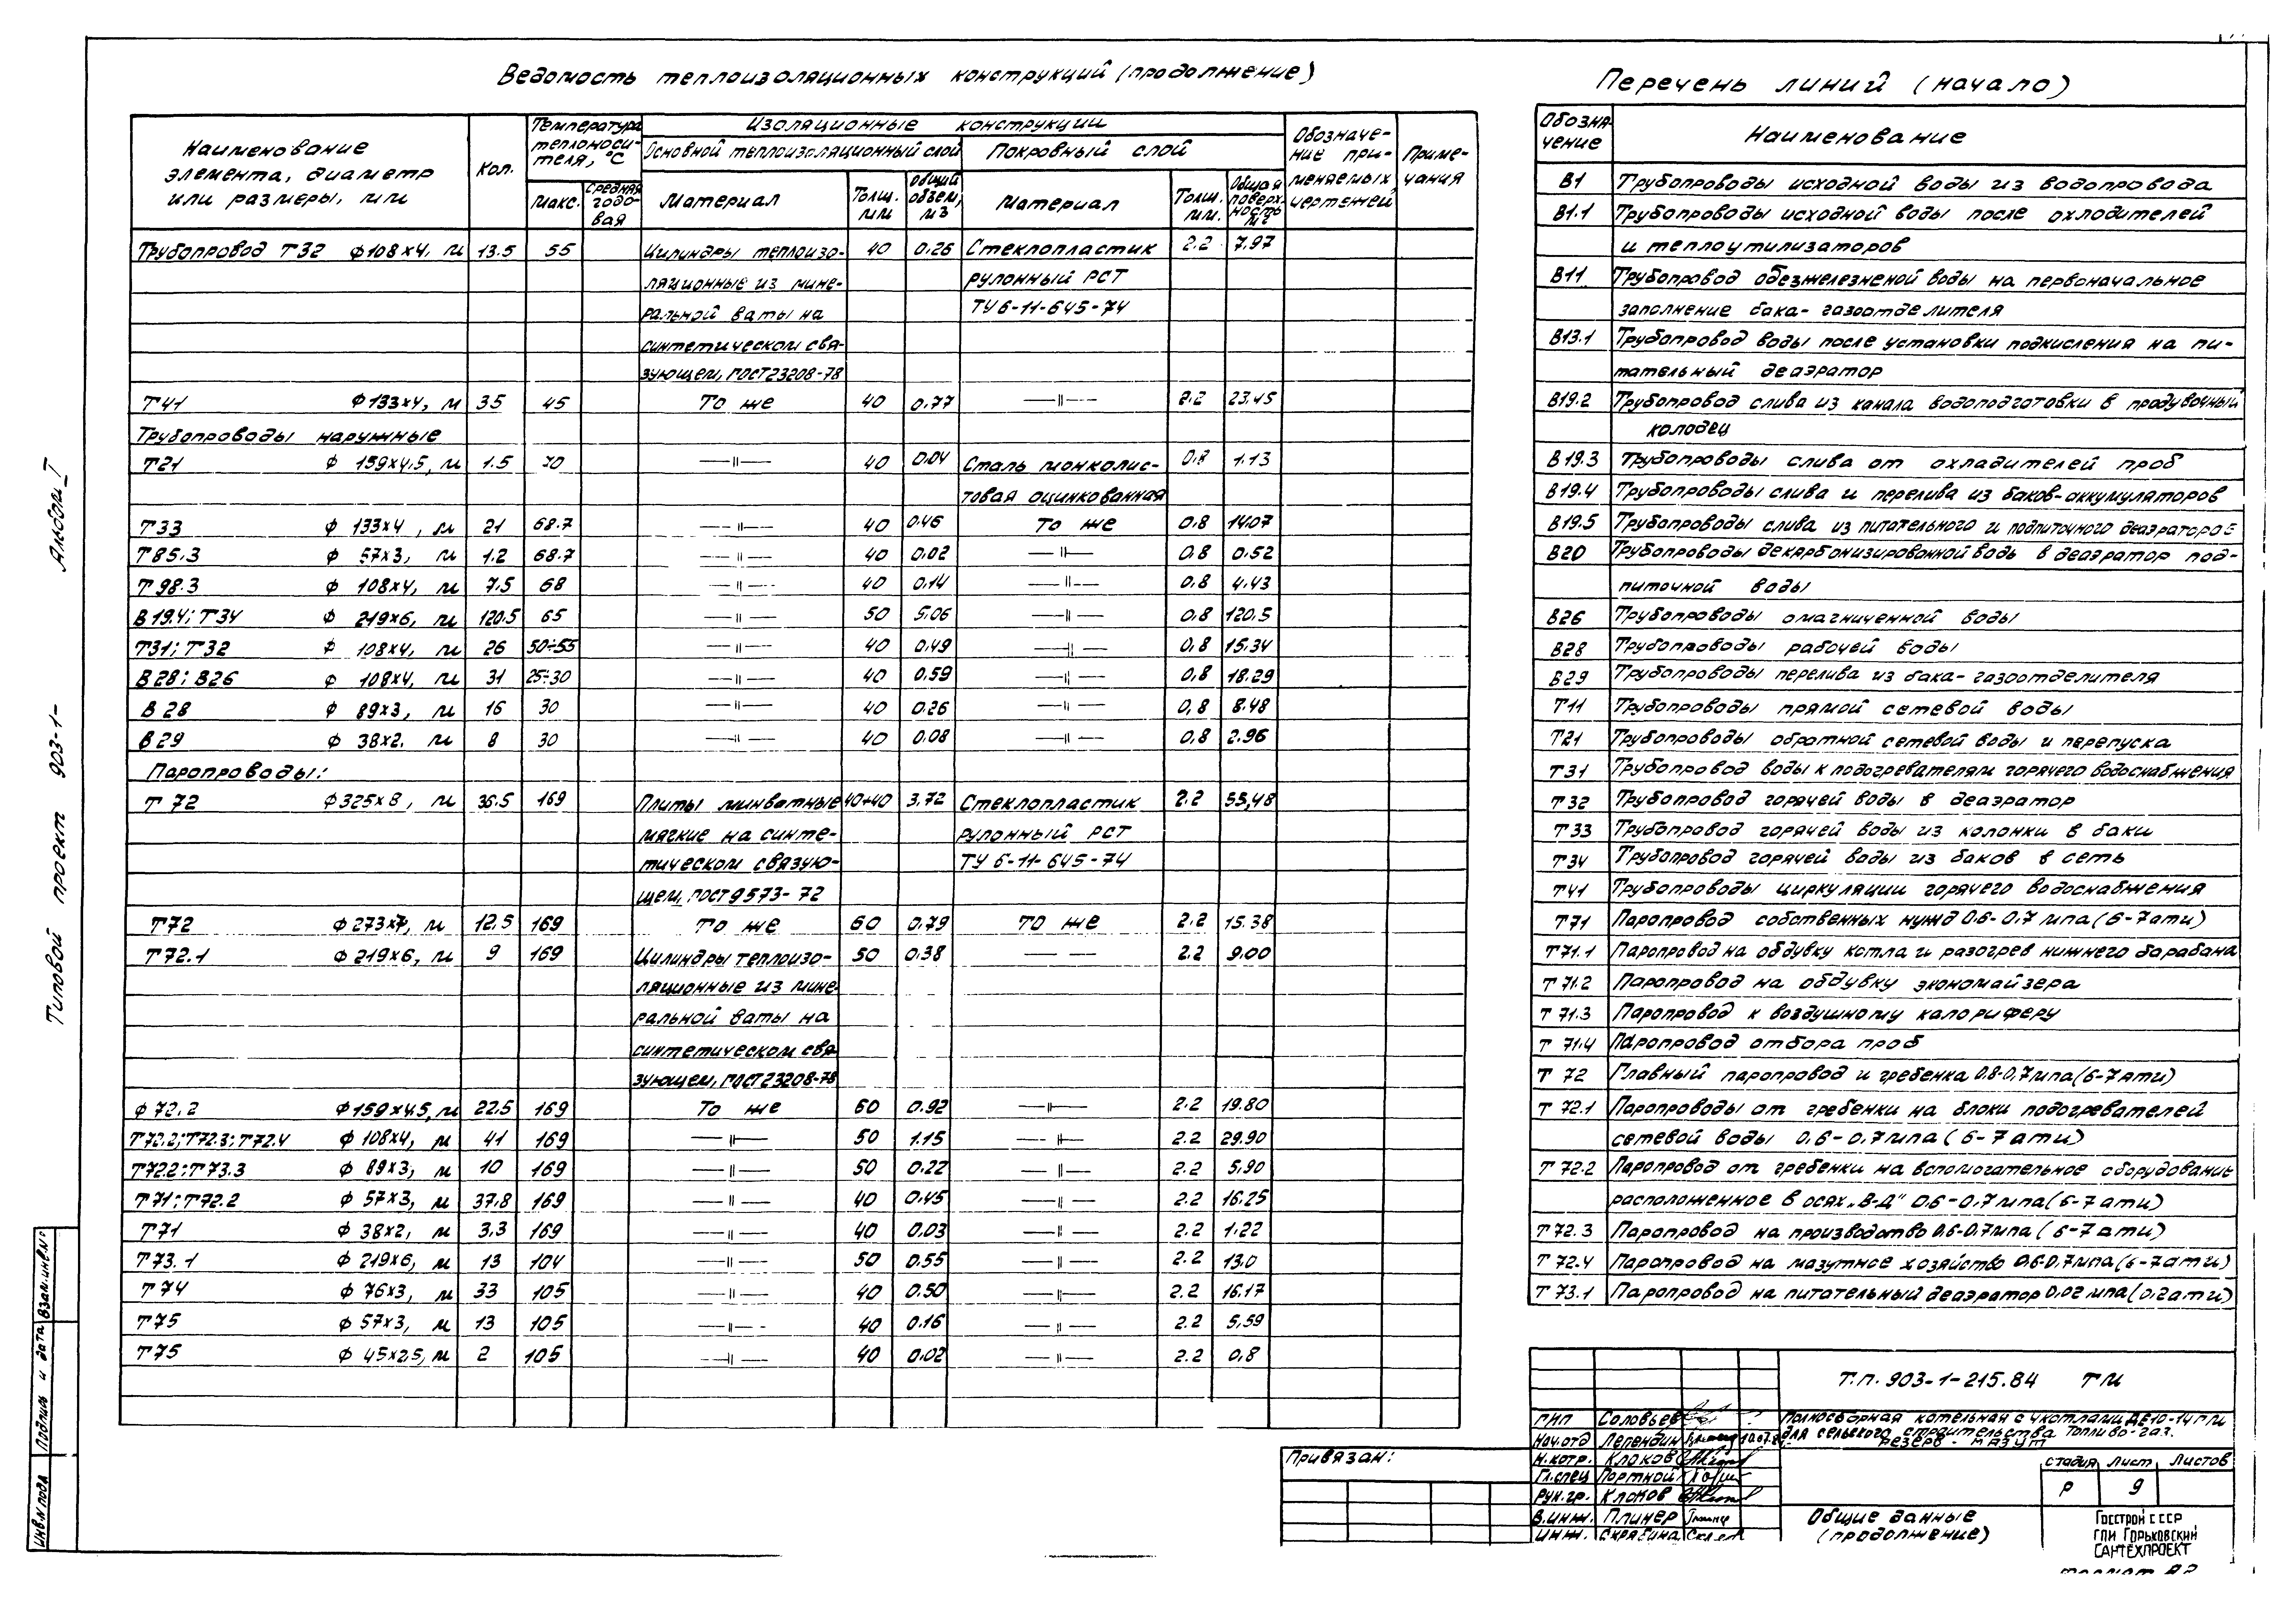 Ведомость теплоизоляционных конструкций (продолжение)
Наименование элемента, диаметр или размеры, мм | Кол. | Температура теплоносителя, °С | Изоляционные конструкции | Обозначение применяемых чертежей | Примечания
Макс. | Средняя годовая | Основной теплоизоляционный слой | Покровный слой
Материал | Толщ. мм | Общий объем, м3 | Материал | Толщ. мм. | Общая поверхность м2
Трубопровод Т32 ф108х4, м 13.5 55 Цилиндры теплоизо- 40 0.26 Стеклопластик 2.2 7.97
ляционные из мине- рулонный РСТ
ральной ваты на ТУ6-11-645-74
синтетическом свя-
зующем, ГОСТ23208-78
Т41 ф133х4, м 35 45 То же 40 0.77 —॥— 2.2 23.45
Трубопроводы наружные
Т21 ф 159х4.5, м 1.5 70 —॥— 40 0.04 Сталь тонколис- 0.8 1.13
товая оцинкованная
Т33 ф 133х4, м 21 68.7 —॥— 40 0.46 То же 0.8 14.07
Т85.3 ф 57х3, м 1.2 68.7 —॥— 40 0.02 —॥— 0.8 0.52
Т98.3 ф 108х4, м 7.5 68 —॥— 40 0.14 —॥— 0.8 4.43
В19.4; Т34 ф 219х6, м 120.5 65 —॥— 50 5.06 —॥— 0.8 120.5
Т31; Т32 ф 108х4, м 26 50÷55 —॥— 40 0.49 —॥— 0.8 15.34
В28; В26 ф 108х4, м 31 25÷30 —॥— 40 0.59 —॥— 0.8 18.29
В28 ф 89х3, м 16 30 —॥— 40 0.26 —॥— 0.8 8.48
В29 ф 38х2. м 8 30 —॥— 40 0.08 —॥— 0.8 2.96
Паропроводы:
Т72 ф325х8, м 36.5 169 Плиты минватные 40+40 3.72 Стеклопластик 2.2 55,48
мягкие на синте- рулонный РСТ
тическом связую- ТУ 6-11-645-74
щем, ГОСТ9573-72
Т72 ф273х7, м 12.5 169 То же 60 0.79 То же 2.2 15.38
Т72.1 ф219х6, м 9 169 Цилиндры теплоизо- 50 0.38 — — 2.2 9.00
ляционные из мине
ральной ваты на
синтетическом свя
зующем, ГОСТ23208-78
ф72.2 ф159х4.5, м 22.5 169 То же 60 0.92 —॥— 2.2 19.80
Т72.2; Т72.3; Т72.4 ф 108х4, м 41 169 —॥— 50 1.15 —॥— 2.2 29.90
Т72.2; Т73.3 ф 89х3, м 10 169 —॥— 50 0.22 —॥— 2.2 5.90
Т71; Т72.2 ф 57х3, м 37.8 169 —॥— 40 0.45 —॥— 2.2 16.25
Т71 ф 38х2, м 3.3 169 —॥— 40 0.03 —॥— 2.2 1.22
Т73.1 ф 219х6, м 13 104 —॥— 50 0.55 —॥— 2.2 13.0
Т74 ф 76х3, м 33 105 —॥— 40 0.50 —॥— 2.2 16.17
Т75 ф 57х3, м 13 105 —॥— 40 0.16 —॥— 2.2 5.59
Т75 ф 45х2.5, м 2 105 —॥— 40 0.02 —॥— 2.2 0,8
Перечень линий (начало)
Обозначение | Наименование
В1 Трубопроводы исходной воды из водопровода
В1.1 Трубопроводы исходной воды после охлодителей
и теплоутилизаторов
В11 Трубопровод обезжелезненой воды на первоначальное
заполнение бака-газоотделителя
В13.1 Трубопровод воды после установки подкисления на пи-
тательный деаэратор
В19.2 Трубопровод слива из канала водоподготовки в продувочный
колодец
В19.3 Трубопроводы слива от охладителей проб
В19.4 Трубопроводы слива и перелива из баков-аккумуляторов
В19.5 Трубопроводы слива из питательного и подпиточного деаэраторов
В20 Трубопроводы декарбонизированной водь в деаэратор под-
питочной воды
В26 Трубопроводы омагниченной воды
В28 Трубопроводы рабочей воды
В29 Трубопроводы перелива из бака-газоотделителя
Т11 Трубопроводы прямой сетевой воды
Т21 Трубопроводы обратной сетевой воды и перепуска
Т31 Трубопровод воды к подогревателям горячего водоснабжения
Т32 Трубопровод горячей воды в деаэратор
Т33 Трубопровод горячей воды из колонки в баки
Т34 Трубопровод горячей воды из баков в сеть
Т41 Трубопроводы циркуляции горячего водоснабжения
Т71 Паропровод собственных нужд 0.6-0,7 мпа (6-7ати)
Т71.1 Паропровод на обдувку котла и разогрев нижнего барабана
Т71.2 Паропровод на обдувку экономайзера
Т71.3 Паропровод к воздушному калориферу
Т71.4 Паропровод отбора проб
Т72 Главный паропровод и гребенка 0.8-0,7мпа (6-7ати)
Т72.1 Паропроводы от гребенки на блоки подогревателей
сетевой воды 0,6-0,7мпа (6-7ати)
Т72.2 Паропровод от гребенки на вспомогательное оборудование
расположенное в осях „В-Д" 0.6-0,7мпа (6-7 ати)
Т72.3 Паропровод на производство 0.6-0.7мпа (6-7ати)
Т72.4 Паропровод на мазутное хозяйство 0.6-0,7мпа (6-7ати)
Т73.1 Паропровод на питательный деаэратор 0,02 мпа (0.2ати)
Т.П. 903-1-215.84 ТМ
Полносборная котельная с 4котлами ДЕ10-14ГМ
для сельского строительства Топливо-газ.
резерв - мазут
ГИП Соловьев
Нач.отд Лепендин
Н.котр. Клоков
Гл.спец Портной
Рук.гр. Клоков
В.инж. Плинер
Инж. Скрябина
стадия Лист Листов
Р 9
Общие данные
(продолжение)
Госстрой СССР
ГПИ Горьковский
САНТЕХПРОЕКТ
Привязан:
Альбом I
Типовой проект 903-1-
Взам.инв.№
Подпись и дата
Инв.№подл